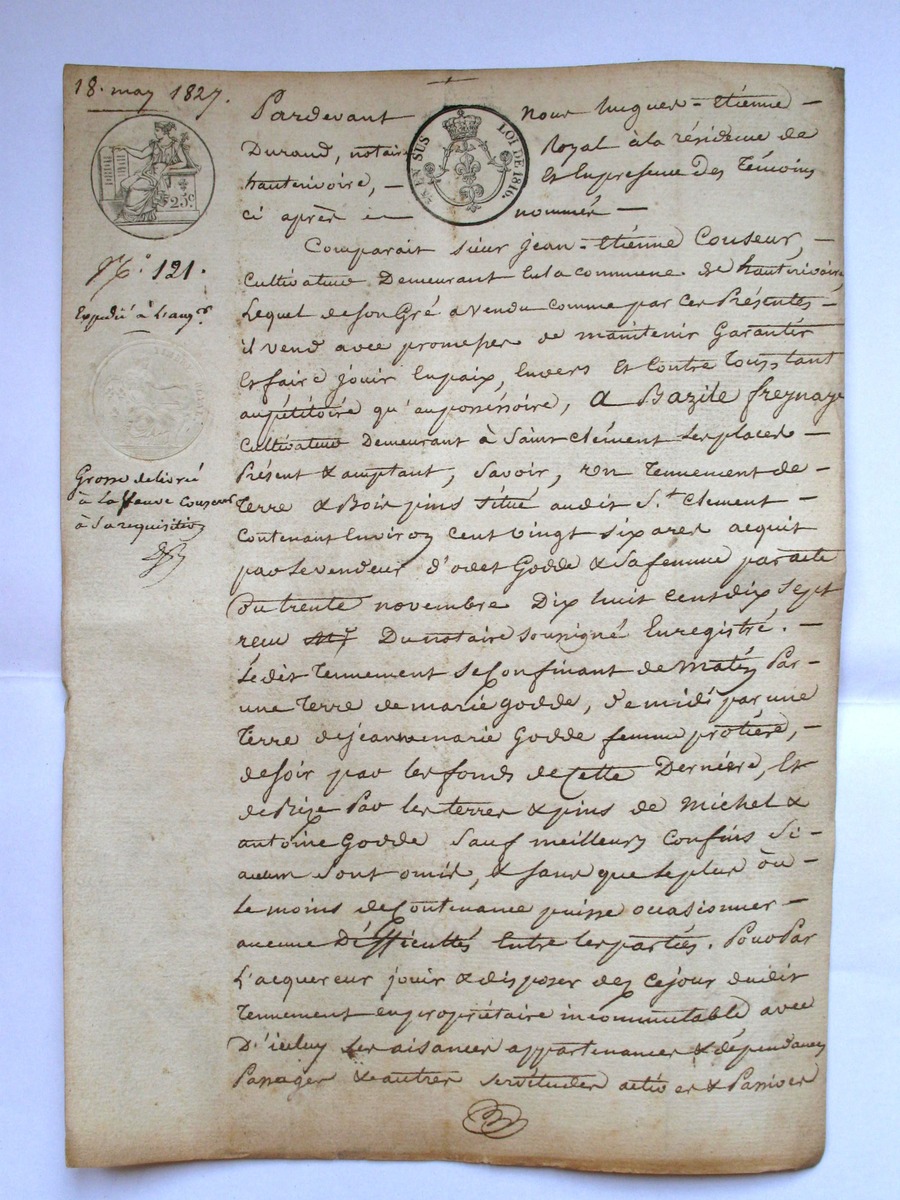 18. may 1827.
25c.
EN SUS LOI DE 1816.
N.° 121.
Expédié à
Grosse delivrée
à La Veuve Couseur
à Sa requisition
Pardevant Nous hugues-étienne
Durand, notaire Royal à la résidence de
hauterivoire, Et En presence Des Témoins
ci après nommés
Comparait Sieur jean-étienne Couseur,
Cultivateur Demeurant En la commune de hauterivoire,
Lequel de son Gré a vendu comme par ces Présentes
il vend avec promesses de maintenir Garantir
Et faire jouir En paix, Envers Et Contre Tous, tant
au pétitoire qu'au possessoire, A Bazile freynay
Cultivateur Demeurant à Saint Clément Les places
Présent & acceptant, Savoir, un Tennement de
Terre & Bois pins Situé audit St. Clement
Contenant Environ cent vingt six ares acquit
par Le vendeur d' Godde & Sa femme par acte
Du trente novembre Dix huit cent dix sept
recu Du notaire soussigné Enregistré.
Le dit Tennement Se Confinant de Matin Par
une Terre de marie godde, De midi par une
Terre de jeanne marie Godde femme protière,
de soir par les fonds de Cette Dernière, Et
de Bize Par les terres & pins de Michel &
antoine Godde Sauf meilleurs Confins Si
aucuns Sont omis, & sans que Le plus ou
Le moins de Contenance puisse occasionner
aucune Difficultés Entre les parties. Pour Par
L'acquereur jouir & disposer des Ce jour dudit
Tennement en propriétaire incommutable avec
D'icelui Les aisances appartenances & dépendances
Passages & autres Servitudes actives & Passives